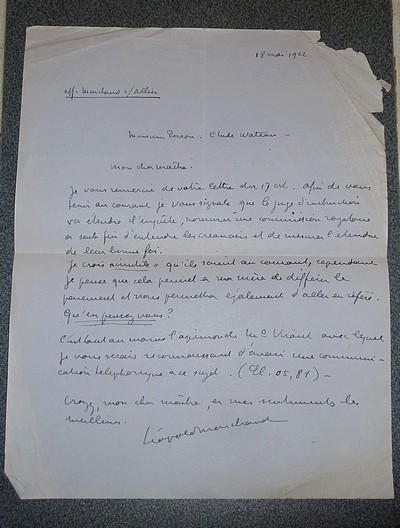 18 mai 19
aff. Marchand c/ Allier
Monsieur Person. Etude Wateau -
Mon cher maître,
Je vous remercie de votre lettre du 17 crt. Afin de vous
tenir au courant je vous signale que le juge d'instruction
va étendre l'enquête, nommer une commission rogatoire
à seule fin d'entendre les créanciers et de mesurer l'étendue
de leur bonne foi.
Je crois qu'ils soient au courant, cependant
Je pense que cela permet à ma mère de différer le
paiement et nous permettra également d'aller en référé.
Qu'en pensez vous?
C'est tout au moins l'opinion de Me avec lequel
je vous serais reconnaissant d'avoir une communi-
cation téléphonique à ce sujet. (05,81) -
Croyez, mon cher maître, en mes sentiments les
meilleurs.
Léopold Marchand